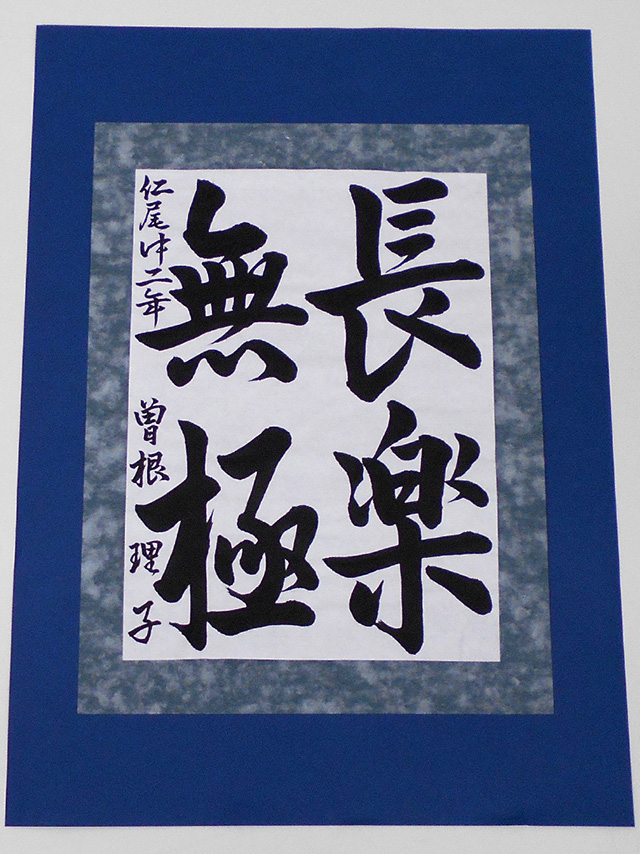 長楽
無極
仁尾中二年 曽根理子